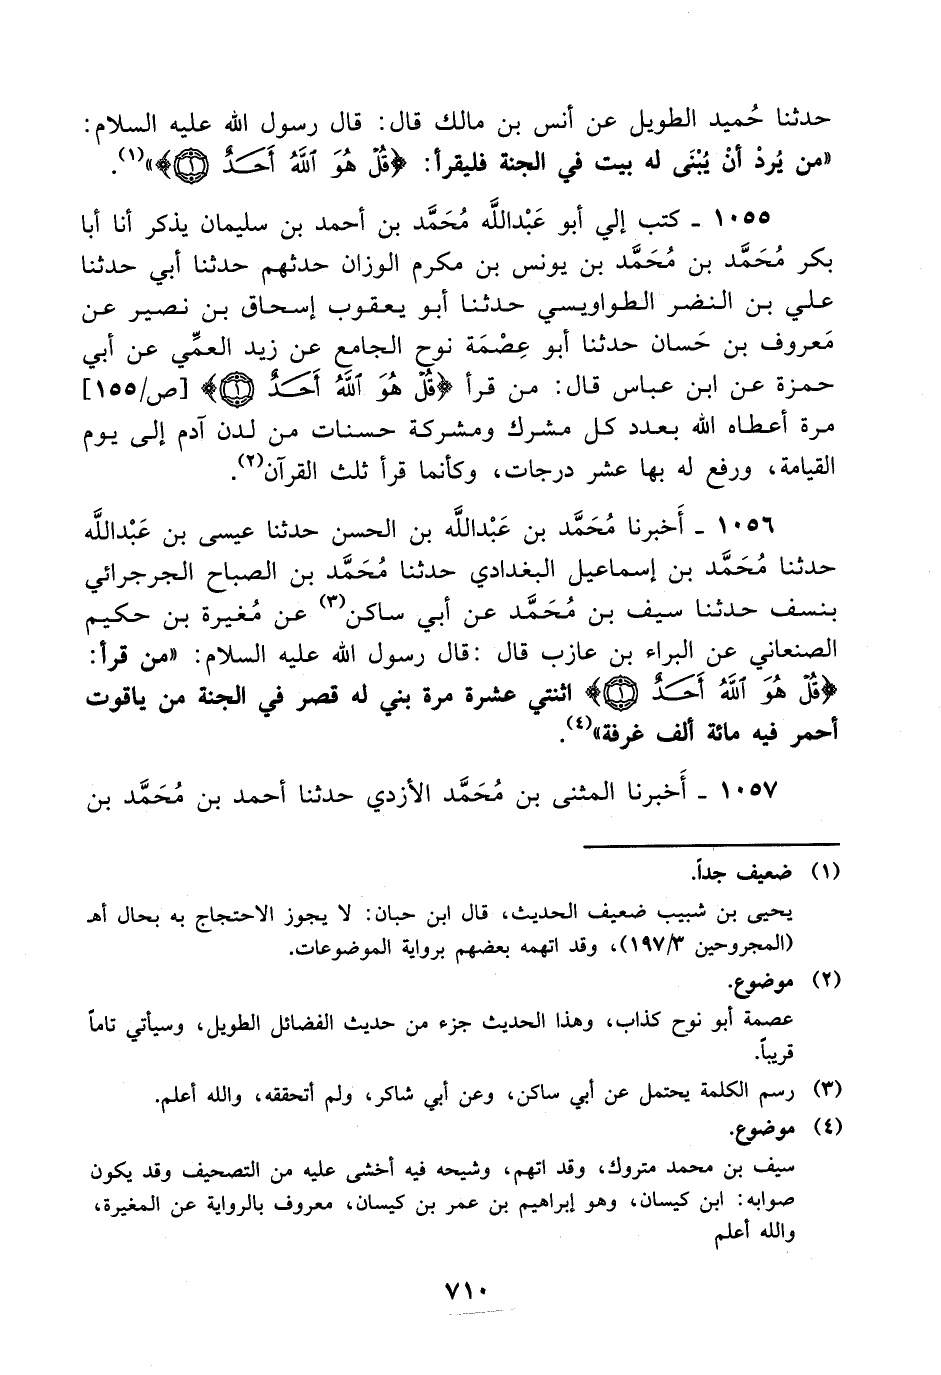 حدثنا حُميد الطويل عن أنس بن مالك قال: قال رسول الله عليه السلام:
«من يُردْ أنْ يُبْنَى له بيت في الجنة فليقرأ: ﴿قُلْ هُوَ ٱللَّهُ أَحَدٌ ۝١﴾»(١).
١٠٥٥ ـ كتب إلي أبو عَبْدالله مُحَمَّد بن أحمد بن سليمان يذكر أنا أبا
بكر مُحَمَّد بن مُحَمَّد بن يونس بن مكرم الوزان حدثهم حدثنا أبي حدثنا
علي بن النضر الطواويسي حدثنا أبو يعقوب إسحاق بن نصير عن
مَعروف بن حَسان حدثنا أبو عِصْمَة نوح الجامع عن زيد العمِّي عن أبي
حمزة عن ابن عباس قال: من قرأ ﴿قُلْ هُوَ ٱللَّهُ أَحَدٌ ۝١﴾ [ص/١٥٥]
مرة أعطاه الله بعدد كل مشرك ومشركة حسنات من لدن آدم إلى يوم
القيامة، ورفع له بها عشر درجات، وكأنما قرأ ثلث القرآن(٢).
١٠٥٦ ـ أَخبرنا مُحَمَّد بن عَبْدالله بن الحسن حدثنا عيسى بن عَبْدالله
حدثنا مُحَمَّد بن إسماعيل البغدادي حدثنا مُحَمَّد بن الصباح الجرجرائي
بنسف حدثنا سيف بن مُحَمَّد عن أبي ساكن(٣) عن مُغيرة بن حكيم
الصنعاني عن البراء بن عازب قال :قال رسول الله عليه السلام: «من قرأ:
﴿قُلْ هُوَ ٱللَّهُ أَحَدٌ ۝١﴾ اثنتي عشرة مرة بني له قصر في الجنة من ياقوت
أحمر فيه مائة ألف غرفة»(٤).
١٠٥٧ ـ أَخبرنا المثنى بن مُحَمَّد الأزدي حدثنا أحمد بن مُحَمَّد بن
(١) ضعيف جداً.
يحيى بن شبيب ضعيف الحديث، قال ابن حبان: لا يجوز الاحتجاج به بحال أهـ
(المجروحين ١٩٧/٣)، وقد اتهمه بعضهم برواية الموضوعات.
(٢) موضوع.
عصمة أبو نوح كذاب، وهذا الحديث جزء من حديث الفضائل الطويل، وسيأتي تاماً
قريباً.
(٣) رسم الكلمة يحتمل عن أبي ساكن، وعن أبي شاكر، ولم أتحققه، والله أعلم.
(٤) موضوع.
سيف بن محمد متروك، وقد اتهم، وشيخه فيه أخشى عليه من التصحيف وقد يكون
صوابه: ابن كيسان، وهو إبراهيم بن عمر بن كيسان، معروف بالرواية عن المغيرة،
والله أعلم
٧١٠